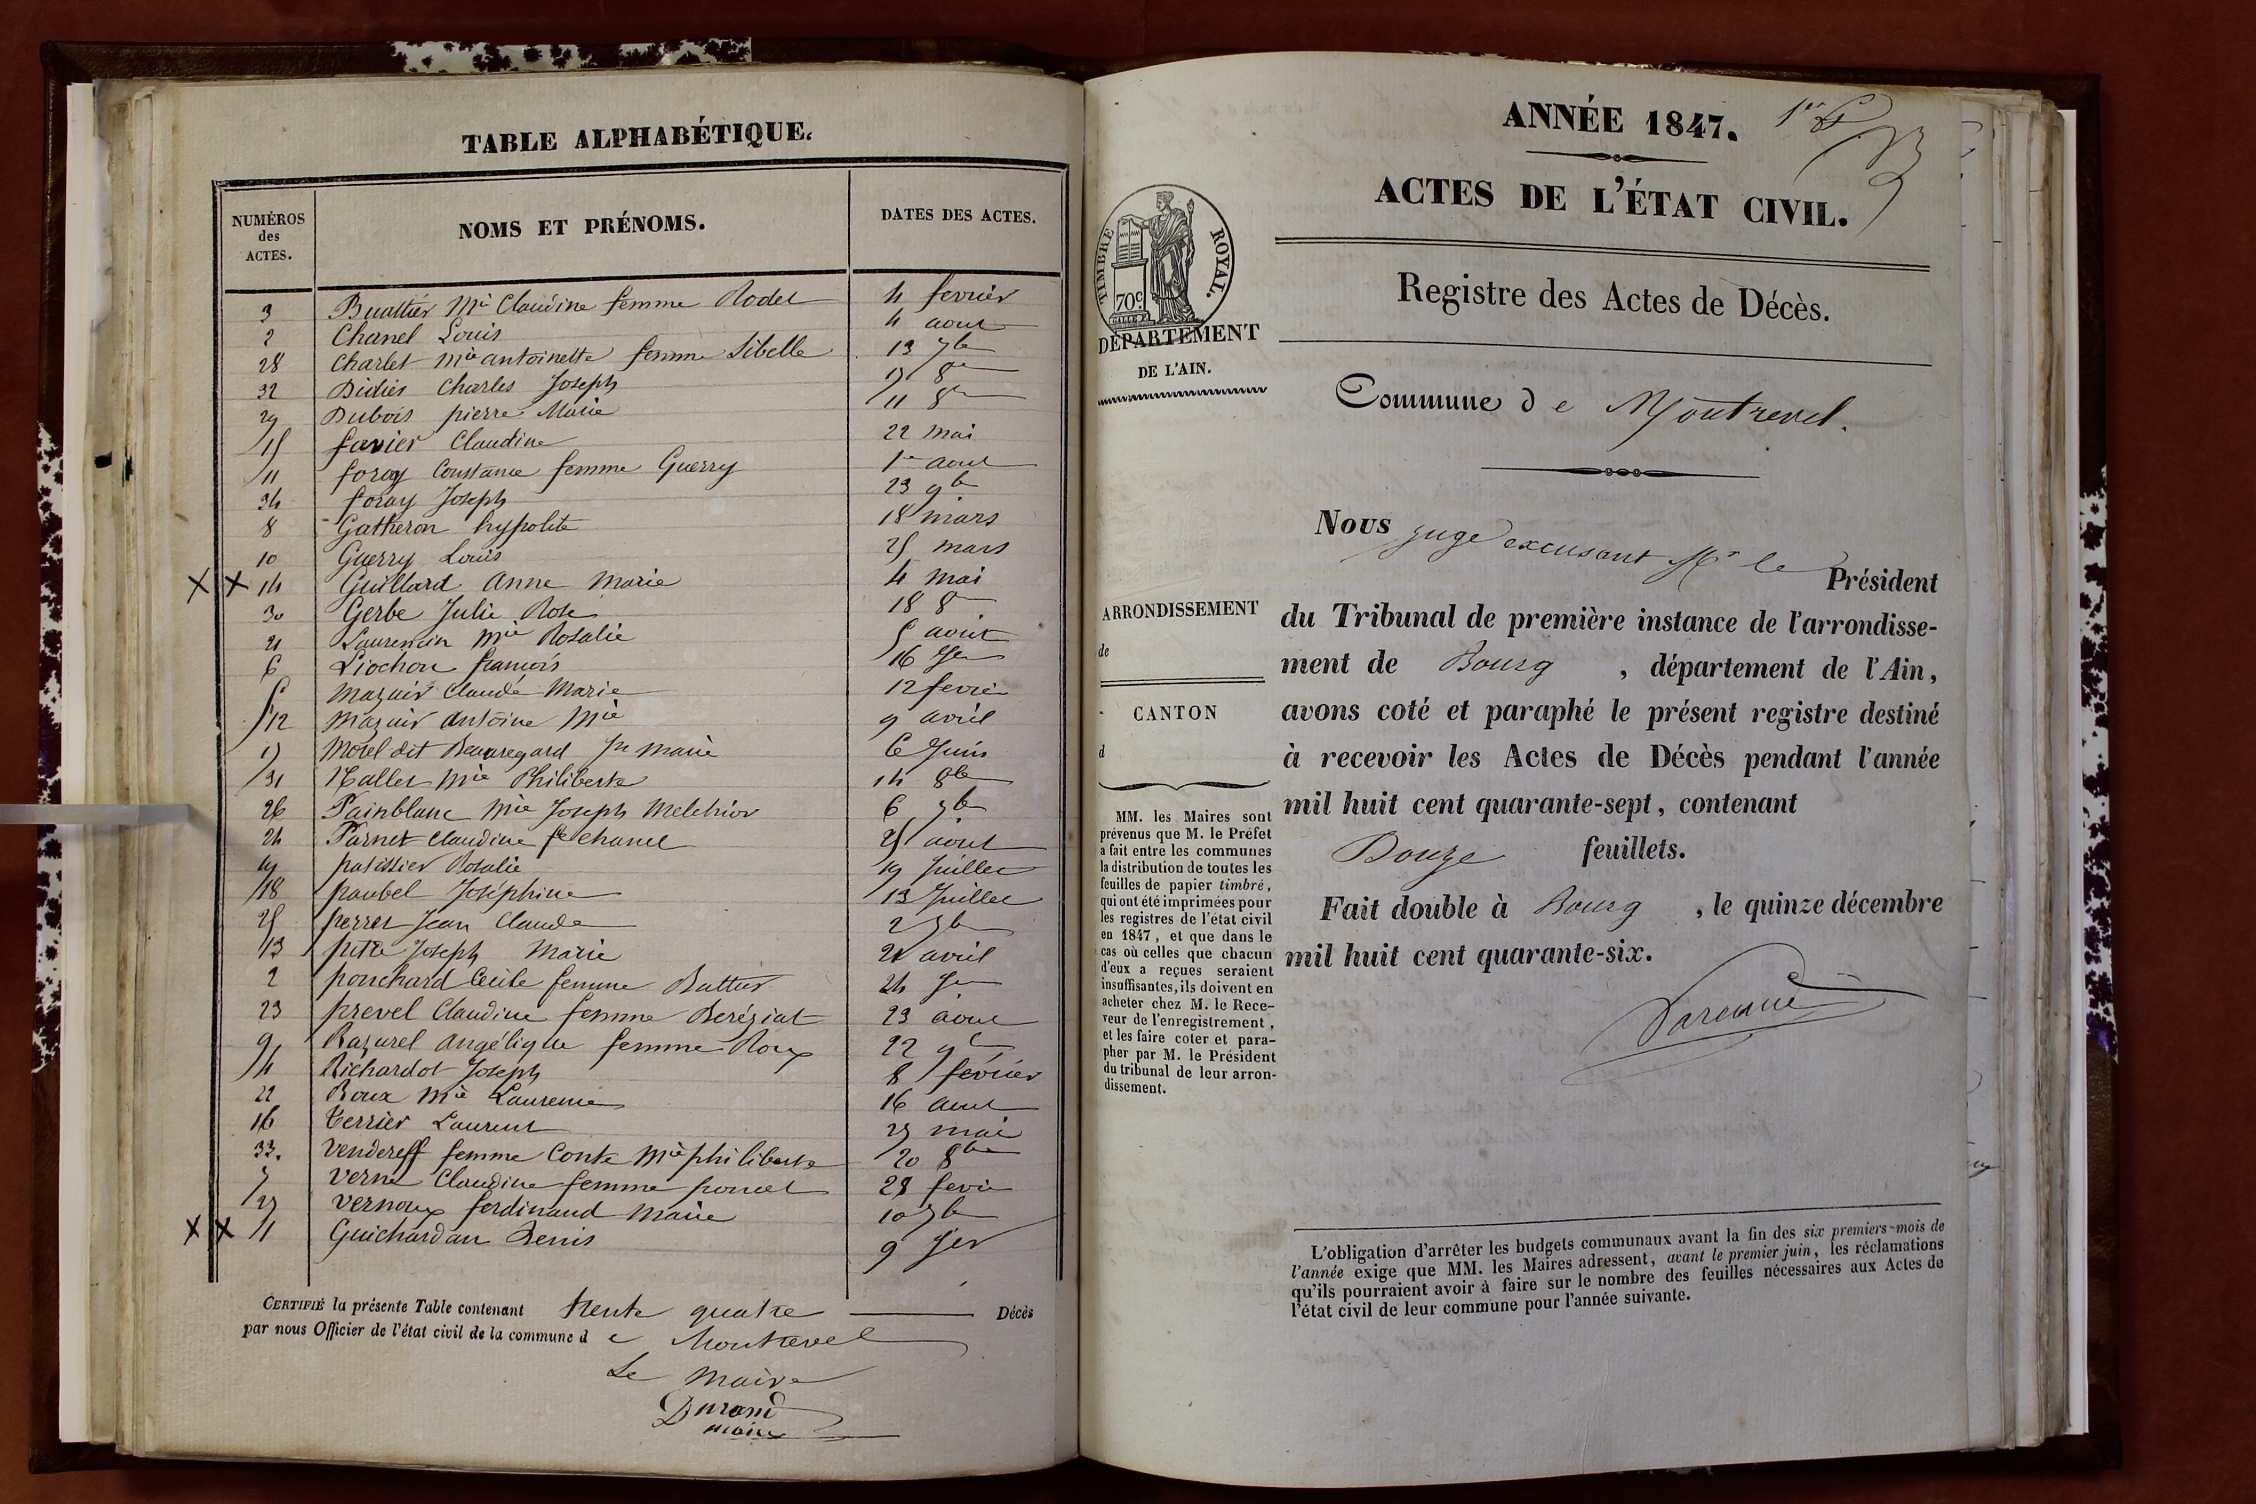 TABLE ALPHABÉTIQUE.
NUMÉROS des ACTES. NOMS ET PRÉNOMS. DATES DES ACTES.
3 Buattier Mie Claudine femme Rodet 4 fevrier
2 Chanel Louis 4 aout
28 Charlet Mie antoinette femme Sibelle 13 7bre
32 Didier Charles Joseph 17 8bre
29 Dubois pierre Marie 11 8bre
15 favier Claudine 22 mai
11 foray Constance femme Guerry 1er aout
34 foray Joseph 23 9bre
8 Gatheron hypolite 18 mars
10 Guerry Louis 25 mars
X X 14 Guillard Anne Marie 4 mai
30 Gerbe Julie Rose 18 8bre
21 Laurencin Mie Rosalie 5 aout
6 Liochon francois 16 Jer
5 Mazuir Claude Marie 12 fevrier
12 Mazuir Antoine Mie 9 avril
17 Morel dit Beauregard Jn Marie 6 Juin
31 Nallet Mie Philiberte 14 8bre
26 Painblanc Mie Joseph Melchior 6 7bre
24 Parnet Claudine fe Chanel 25 aout
19 patissier Rosalie 19 Juillet
18 paubel Joséphine 13 Juillet
25 perret Jean Claude 2 7bre
13 pitre Joseph Marie 21 avril
2 ponchard Cécile femme Buttus 24 Jer
23 prevel Claudine femme Beréziat 23 aout
9 Razurel Angélique femme Roux 22
4 Richardot Joseph 8 février
22 Roux Mie Laurence 16 aout
16 terrier Laurent 25 mai
33. Vendereff femme Conte Mie philiberte 20 8bre
7 Verne Claudine femme poncet 28 fevrier
27 Vernoux ferdinand Marie 10 7bre
X X 1 Guichardan Denis 9 Jer
CERTIFIÉ la présente Table contenant trente quatre Décès
par nous Officier de l'état civil de la commune d e Montrevel
Le Maire
Durand
maire
ANNÉE 1847. 1er
ACTES DE L'ÉTAT CIVIL.
TIMBRE ROYAL.
70c
DÉPARTEMENT
DE L'AIN.
Registre des Actes de Décès.
Commune d e Montrevel.
ARRONDISSEMENT
de
CANTON
d
MM. les Maires sont
prévenus que M. le Préfet
a fait entre les communes
la distribution de toutes les
feuilles de papier timbré,
qui ont été imprimées pour
les registres de l'état civil
en 1847, et que dans le
cas où celles que chacun
d'eux a reçues seraient
insuffisantes, ils doivent en
acheter chez M. le Rece-
veur de l'enregistrement,
et les faire coter et para-
pher par M. le Président
du tribunal de leur arron-
dissement.
Nous Juge excusant Mr le
Président
du Tribunal de première instance de l'arrondisse-
ment de Bourg , département de l'Ain,
avons coté et paraphé le présent registre destiné
à recevoir les Actes de Décès pendant l'année
mil huit cent quarante-sept, contenant
Douze feuillets.
Fait double à Bourg , le quinze décembre
mil huit cent quarante-six.
L'obligation d'arrêter les budgets communaux avant la fin des six premiers mois de
l'année exige que MM. les Maires adressent, avant le premier juin, les réclamations
qu'ils pourraient avoir à faire sur le nombre des feuilles nécessaires aux Actes de
l'état civil de leur commune pour l'année suivante.